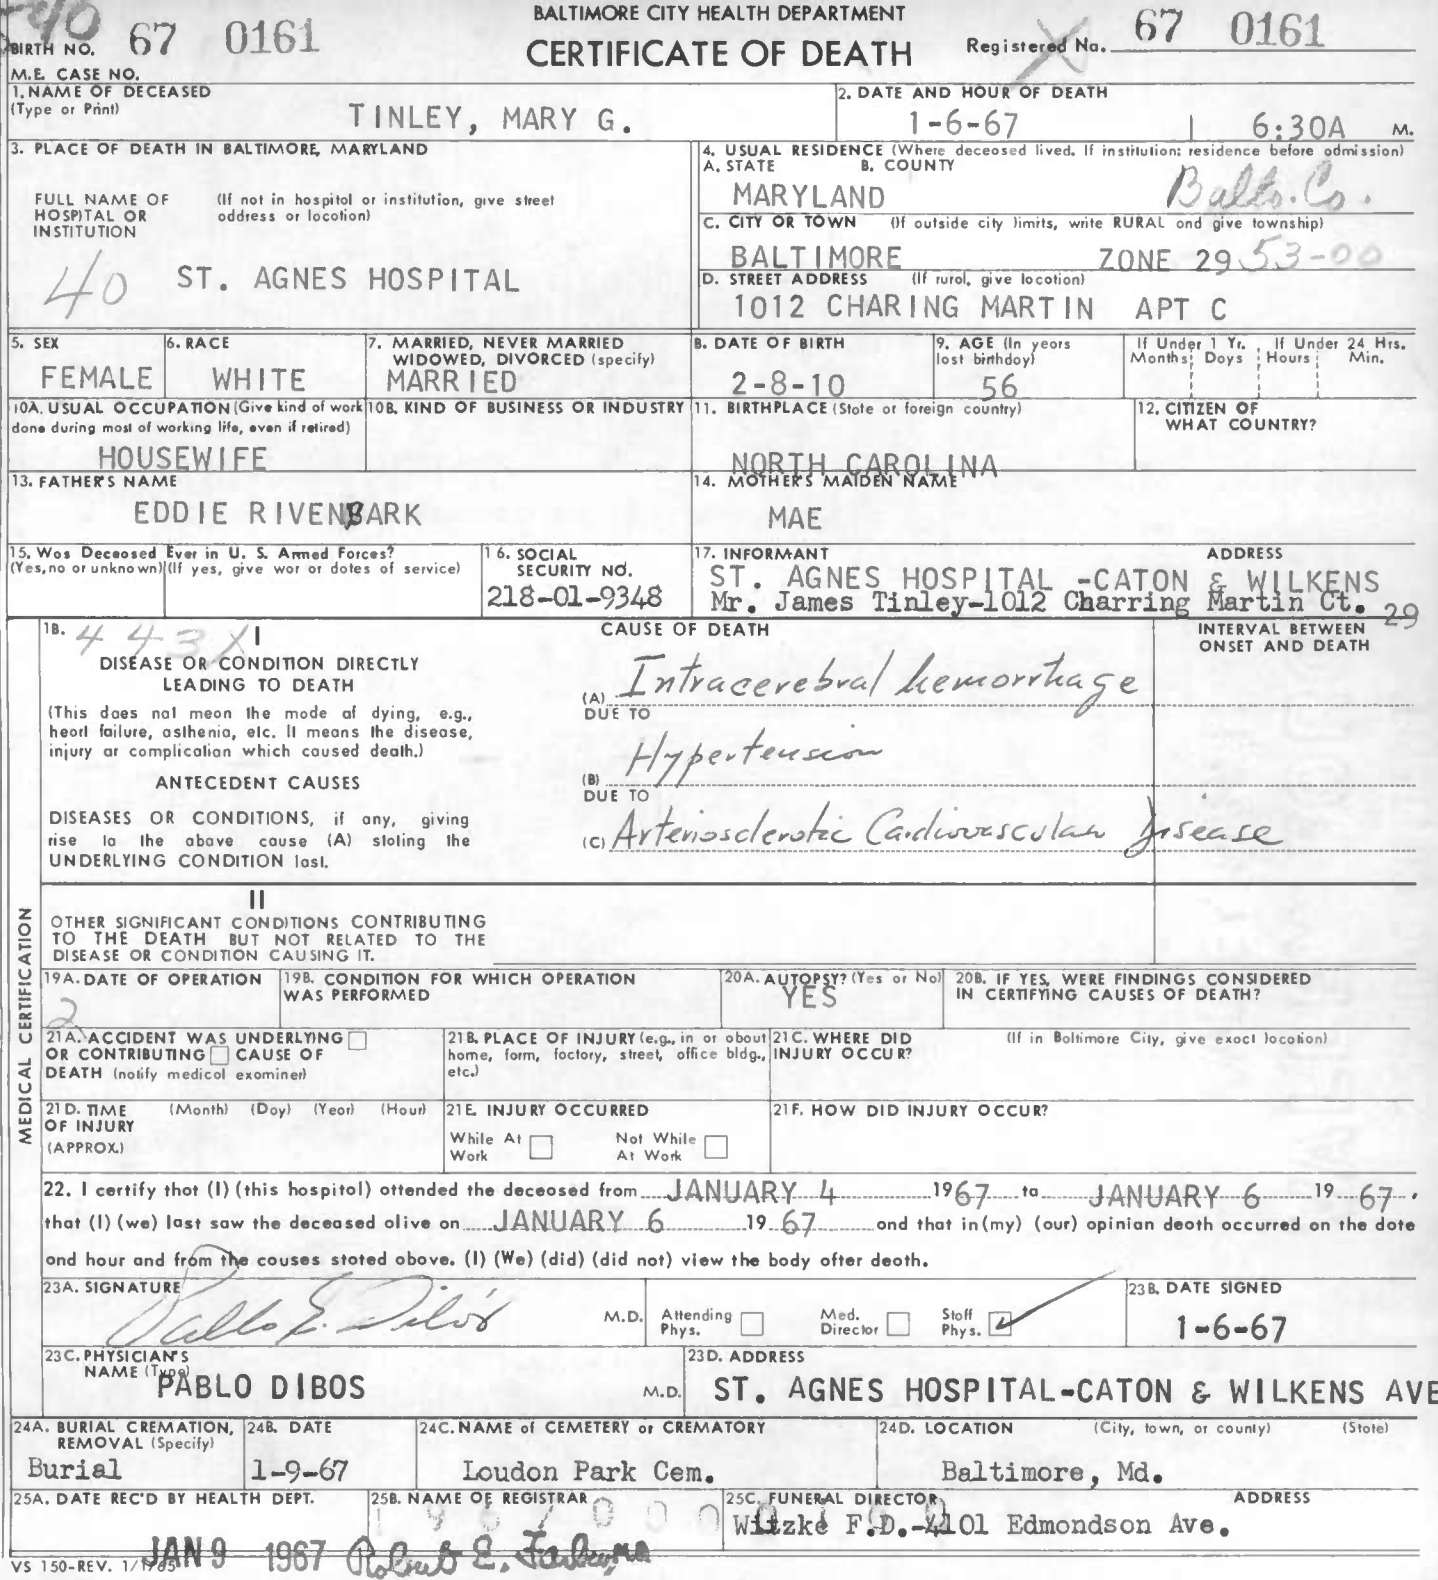 BALTIMORE CITY HEALTH DEPARTMENT
CERTIFICATE OF DEATH
BIRTH NO. 67 0161
Registered No. 67 0161
M.E. CASE NO.
1. NAME OF DECEASED
(Type or Print)
TINLEY, MARY G.
2. DATE AND HOUR OF DEATH
1-6-67 6:30A M.
3. PLACE OF DEATH IN BALTIMORE, MARYLAND
FULL NAME OF HOSPITAL OR INSTITUTION
(If not in hospital or institution, give street address or location)
40 ST. AGNES HOSPITAL
4. USUAL RESIDENCE (Where deceased lived. If institution: residence before admission)
A. STATE B. COUNTY
MARYLAND Balto. Co.
C. CITY OR TOWN (If outside city limits, write RURAL and give township)
BALTIMORE ZONE 29 53-00
D. STREET ADDRESS (If rural, give location)
1012 CHARING MARTIN APT C
5. SEX
FEMALE
6. RACE
WHITE
7. MARRIED, NEVER MARRIED
WIDOWED, DIVORCED (specify)
MARRIED
8. DATE OF BIRTH
2-8-10
9. AGE (In years
last birthday)
56
If Under 1 Yr. If Under 24 Hrs.
Months Days Hours Min.
10A. USUAL OCCUPATION (Give kind of work
done during most of working life, even if retired)
HOUSEWIFE
10B. KIND OF BUSINESS OR INDUSTRY
11. BIRTHPLACE (State or foreign country)
NORTH CAROLINA
12. CITIZEN OF
WHAT COUNTRY?
13. FATHER'S NAME
EDDIE RIVENBARK
14. MOTHER'S MAIDEN NAME
MAE
15. Was Deceased Ever in U. S. Armed Forces?
(Yes, no or unknown) (If yes, give war or dates of service)
16. SOCIAL
SECURITY NO.
218-01-9348
17. INFORMANT ADDRESS
ST. AGNES HOSPITAL -CATON & WILKENS
Mr. James Tinley-1012 Charring Martin Ct. 29
18. 443X I
CAUSE OF DEATH
INTERVAL BETWEEN
ONSET AND DEATH
DISEASE OR CONDITION DIRECTLY
LEADING TO DEATH
(This does not mean the mode of dying, e.g.,
heart failure, asthenia, etc. It means the disease,
injury or complication which caused death.)
(A) Intracerebral hemorrhage
DUE TO
Hypertension
(B)
DUE TO
(C) Arteriosclerotic Cardiovascular Disease
ANTECEDENT CAUSES
DISEASES OR CONDITIONS, if any, giving
rise to the above cause (A) stating the
UNDERLYING CONDITION last.
II
OTHER SIGNIFICANT CONDITIONS CONTRIBUTING
TO THE DEATH BUT NOT RELATED TO THE
DISEASE OR CONDITION CAUSING IT.
MEDICAL CERTIFICATION
19A. DATE OF OPERATION
2
19B. CONDITION FOR WHICH OPERATION
WAS PERFORMED
20A. AUTOPSY? (Yes or No)
YES
20B. IF YES, WERE FINDINGS CONSIDERED
IN CERTIFYING CAUSES OF DEATH?
21A. ACCIDENT WAS UNDERLYING
OR CONTRIBUTING CAUSE OF
DEATH (notify medical examiner)
21B. PLACE OF INJURY (e.g., in or about
home, farm, factory, street, office bldg.,
etc.)
21C. WHERE DID (If in Baltimore City, give exact location)
INJURY OCCUR?
21D. TIME (Month) (Day) (Year) (Hour)
OF INJURY
(APPROX.)
21E. INJURY OCCURRED
While At Work Not While At Work
21F. HOW DID INJURY OCCUR?
22. I certify that (I) (this hospital) attended the deceased from JANUARY 4 1967 to JANUARY 6 19 67,
that (I) (we) last saw the deceased alive on JANUARY 6 19 67 and that in (my) (our) opinion death occurred on the date
and hour and from the causes stated above. (I) (We) (did) (did not) view the body after death.
23A. SIGNATURE
Pablo E. Dibós M.D.
Attending Phys. Med. Director Staff Phys.
23B. DATE SIGNED
1-6-67
23C. PHYSICIAN'S
NAME (Type)
PABLO DIBOS M.D.
23D. ADDRESS
ST. AGNES HOSPITAL-CATON & WILKENS AVE
24A. BURIAL CREMATION,
REMOVAL (Specify)
Burial
24B. DATE
1-9-67
24C. NAME of CEMETERY or CREMATORY
Loudon Park Cem.
24D. LOCATION (City, town, or county) (State)
Baltimore, Md.
25A. DATE REC'D BY HEALTH DEPT.
JAN 9 1967
25B. NAME OF REGISTRAR
Robert E. Farber, MD
25C. FUNERAL DIRECTOR ADDRESS
Witzke F.D.-4101 Edmondson Ave.
VS 150-REV. 1/1/65